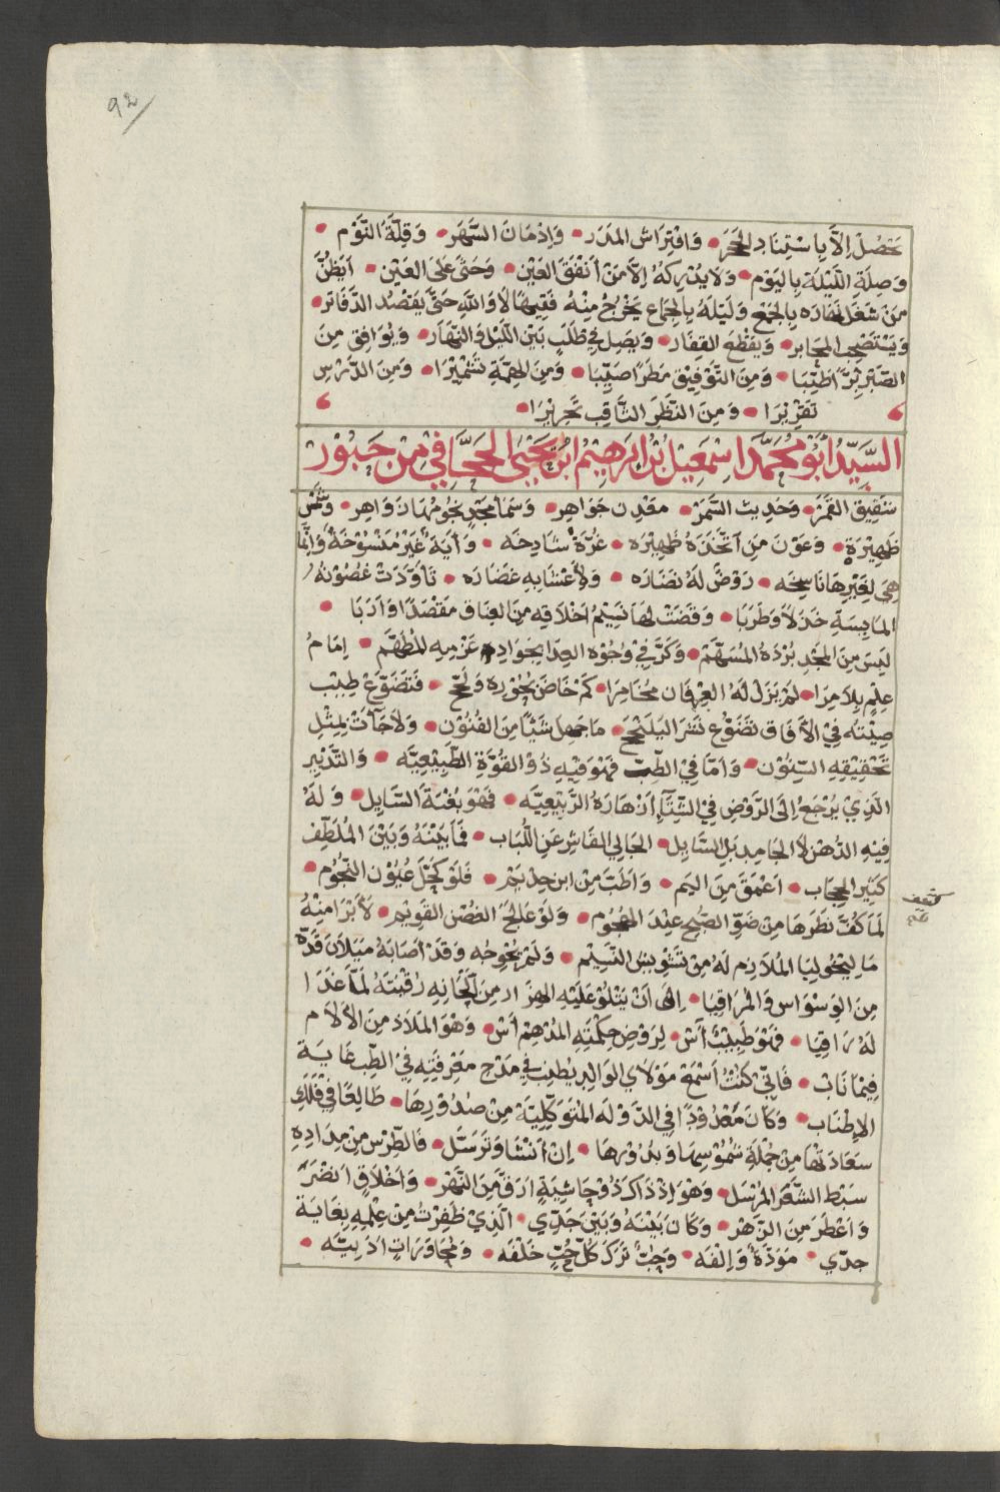 92
تحصل إلا باستناد الحجر • وافتراش المدر • وإدمان السهر • وقلة النوم •
وصلة الليلة باليوم • ولا يدركه إلا من أنفق العين • وحتى على العين • أيظن
من شغل نهاره بالجمع وليله بالجماع يخرج منه فقيها لا والله حتى يقصد الدفاتر •
ويستصحب المحابر • ويقطع القفار • ويصل في طلب بين الليل والنهار • ويوافق من
الصبر برا طيبا • ومن التوفيق مطرا صيبا • ومن الهمة تشميرا • ومن الدرس
تقريرا • ومن النظر الثاقب تحريرا •
السيد أبو محمد اسمعيل بن ابرهيم ابن يحيى الحجافي من حبور
شقيق القمر • وحديث السمر • معدن جواهر • وسما مجد نجومها زواهر • وشمس
ظهيرة • وعون من اتخذه ظهيره • غرة شادخه • وآية غير منسوخة وانما
هي لغيرها ناسخه • روض له نضاره • ولاعشابه غضاره • تأودت غصونه
المايسة خذلا وطربا • وقضت لها نسيم اخلاقه من العناق مقصدا واربا •
لبس من المجد برده المسهم • وكر في وجوه العدا بجواد عزمه المطهم • امام
علم بلا مرا • لم يزل له العرفان مخامرا • كم خاض بحوره ولجج • فتضوع طيب
صيته في الآفاق تضوع نشر اليلنجج • ما جهل شيئا من الفنون • ولا جآت بمثل
تحقيقه السنون • واما في الطب فهو فيه ذو القوة الطبيعيه • والتدبير
الذي يرجع الى الروض في الشتآ ازهاره الربيعيه • فهو بغية السايل • وله
فيه الذهن لا الجامد بل السايل • الجالي القاشر عن اللباب • فما بينه وبين الملطف
كثير الحجاب • اعمق من اليم • واطب من ابن حذيم • فلو كحل عيون النجوم •
لما كفت نظرها من ضو الصبح عند الهجوم • ولو عالج الغصن القويم • لأبرا منه
ماليخوليا الملازم له من تشويش النسيم • ولم يحوجه وقد أصابه ميلان قده
من الوسواس والمراقيا • الى ان يتلو عليه الهزار من الحانه رقيته لما غدا
له راقيا • فهو طبيب آس • لروض حكمته المدهم آس • وهو الملاذ من الآلام
فيما ناب • فاني كنت اسمع مولاي الوالد يطنب في مدح معرفته في الطب غاية
الاطناب • وكان معدودا في الدولة المتوكلية من صدورها • طالعا في فلك
سعادتها من جملة شموسها وبدورها • ان أنشا وترسل • فالطرس من مداده
سبط الشعر المرسل • وهو اذ ذاك ذو حاشية ارق من النهر • واخلاق انضر
واعطر من الزهر • وكان بينه وبين جدي • الذي ظفرت من علمه بغاية
جدي • مودة والفه • وحب ترك كل حب خلفه • ومحاورات ادبيه •